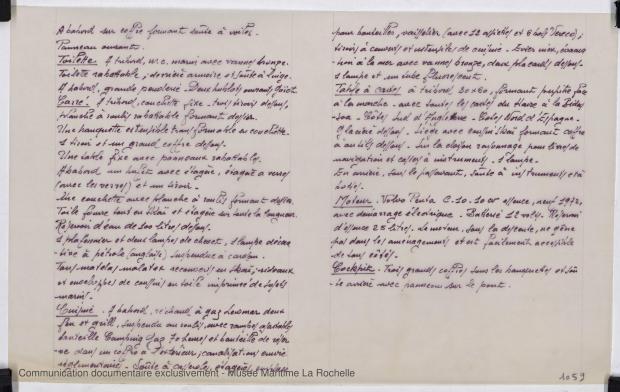 A babord sur coffre formant soute à voiles.
Panneau ouvrant.
Toilette. A tribord, W.C. marin avec vannes bronze.
Toilette rabattable, derrière armoire et soute à linge.
A babord, grande penderie. Deux hublots ouvrants Goiot.
Carré. A tribord, couchette fixe. Trois tiroirs dessous,
planche à roulis rabattable formant dossier.
Une banquette extensible transformable en couchette.
1 tiroir et un grand coffre dessous.
Une table fixe avec panneaux rabattables.
A babord un buffet avec étagère, étagère à verres
(avec les verres) et un tiroir.
Une couchette avec planche à roulis formant dossier.
Toile fourre tout en skai et étagère sur toute la longueur.
Réservoir d'eau de 100 litres dessous.
1 plafonnier et deux lampes de chevet, 1 lampe décora-
tive à pétrole (anglaise) suspendue à cardan.
Tous matelas, recouverts en skai, rideaux
et enveloppes de coussins en toile imprimée de sujets
marins.
Cuisine. A babord, réchaud à gaz deux
feux et grill, suspendu au roulis, avec rampes
bouteille Camping Gaz et bouteille de réser-
ve dans un coffre à l'extérieur, canalisations cuivre
réglementaire. Soute à casseroles, étagères
pour bouteilles, vaisselier (avec 12 assiettes et 8 bols Vereco),
tiroirs à couverts et ustensiles de cuisine. Evier inox, évacua-
tion à la mer avec vannes bronze, deux placards dessous.
1 lampe et un tube fluorescent.
Table à cartes à tribord, formant pupitre face
à la marche. avec toutes les cartes du Havre à la Bidas-
soa. Côtes Sud d'Angleterre. Côtes Nord d'Espagne.
Glacière dessous. Siège avec coussin skai formant coffre
à outils dessous. Sur la cloison rayonnage pour livres de
navigation et casiers à instruments. 1 lampe.
En arrière, sous le passavant, soute à instruments
Moteur. Volvo Penta C. 10. 10 cv essence, neuf 1972,
avec démarrage électrique. Batterie 12 volts. Réservoir
d'essence 25 litres. Le moteur, sous la descente, ne gêne
pas dans les aménagements et est facilement accessible
de tous côtés.
Cockpit. Trois grands coffres sous les banquettes et sou-
te arrière avec panneau sur le pont.
1059
Communication documentaire exclusivement - Musée Maritime La Rochelle